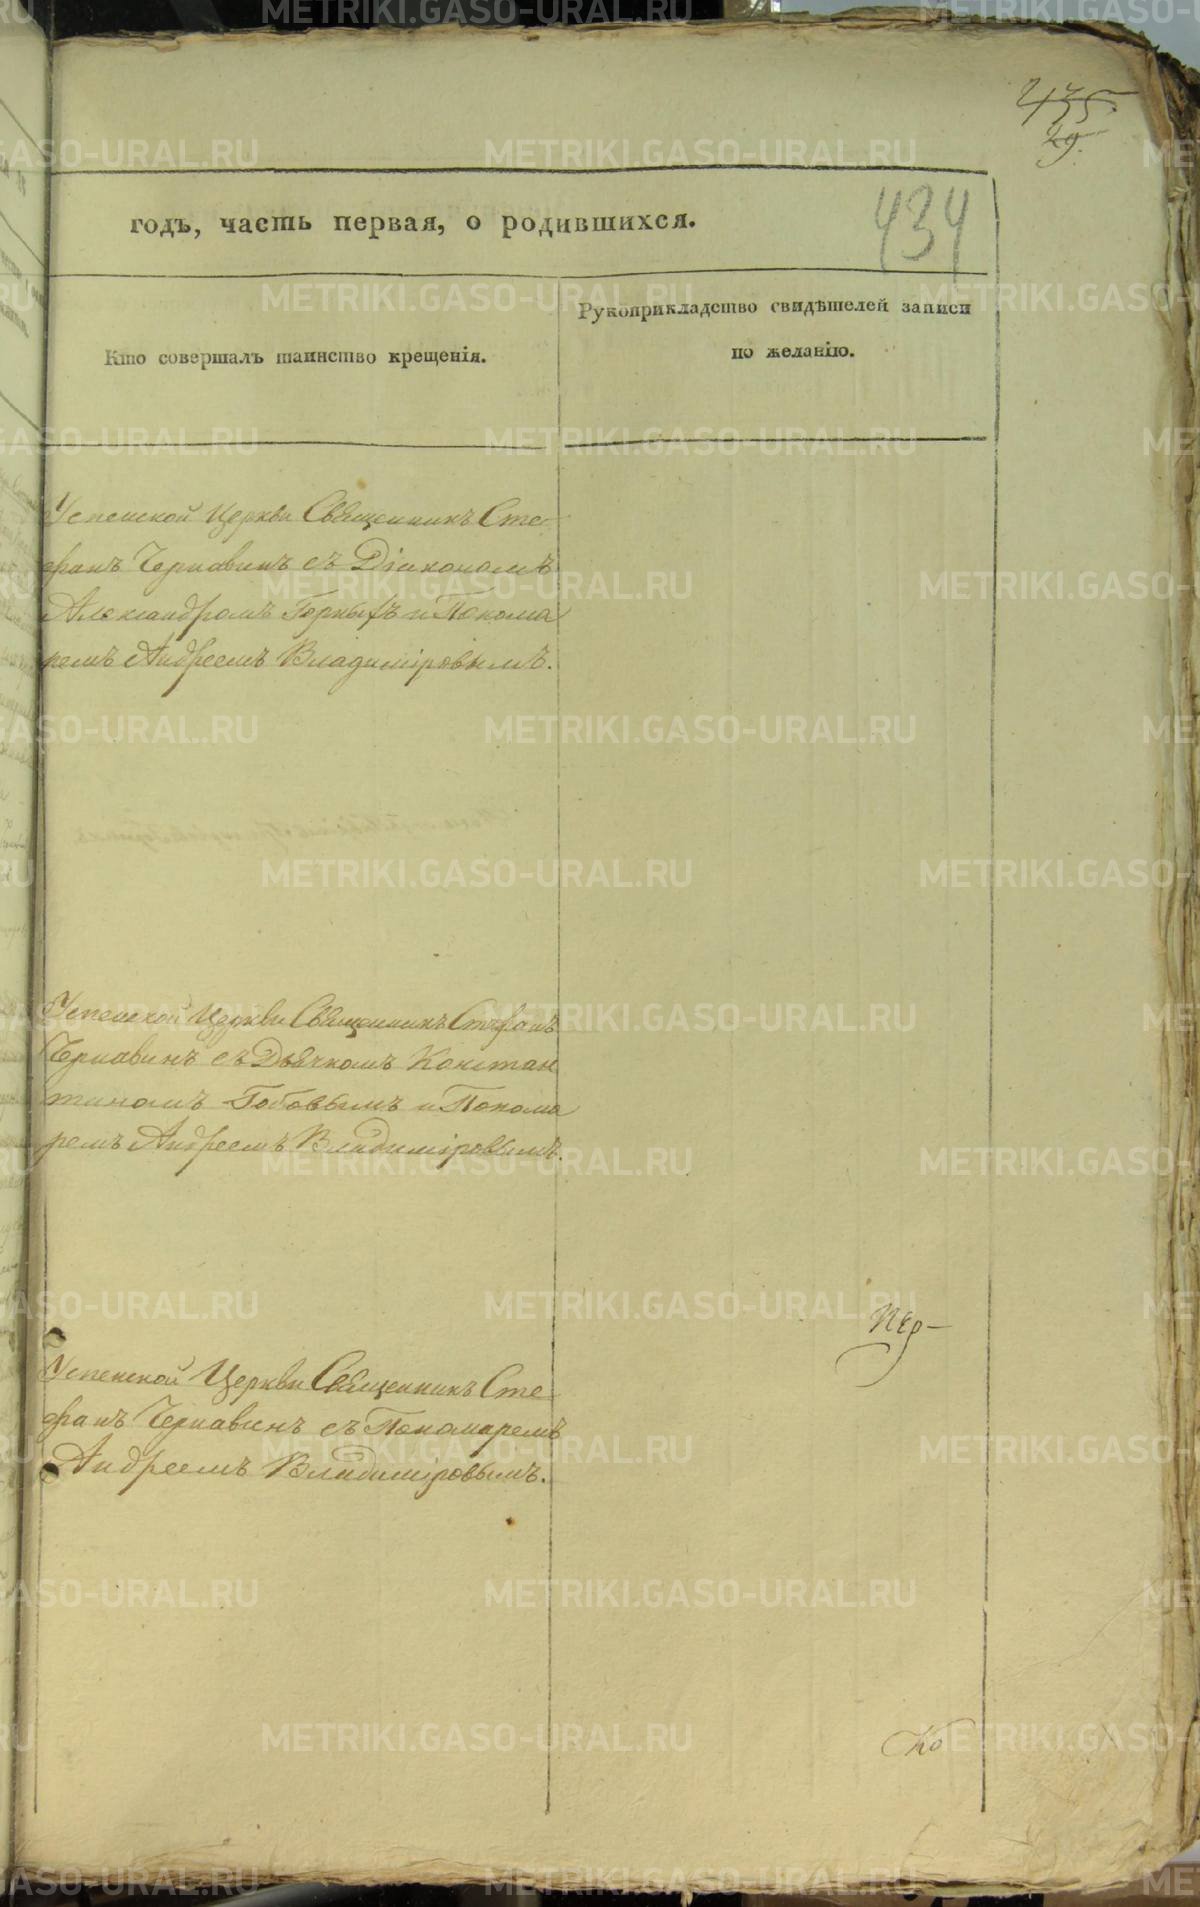 435.
29.
434
годъ, часть первая, о родившихся.
Кто совершалъ таинство крещенія.
Рукоприкладство свидѣтелей записи
по желанію.
Успенской Церкви Священникъ Сте-
фанъ Чернавинъ съ Діакономъ
Александромъ Горныхъ и Понома
ремъ Андреемъ Владиміровымъ.
Успенской Церкви Священникъ Стефанъ
Чернавинъ съ Дьячкомъ Констан
тиномъ Поповымъ и Понома
ремъ Андреемъ Владиміровымъ.
Пер-
Успенской Церкви Священникъ Сте
фанъ Чернавинъ съ Пономаремъ
Андреемъ Владиміровымъ.
Ко
METRIKI.GASO-URAL.RU